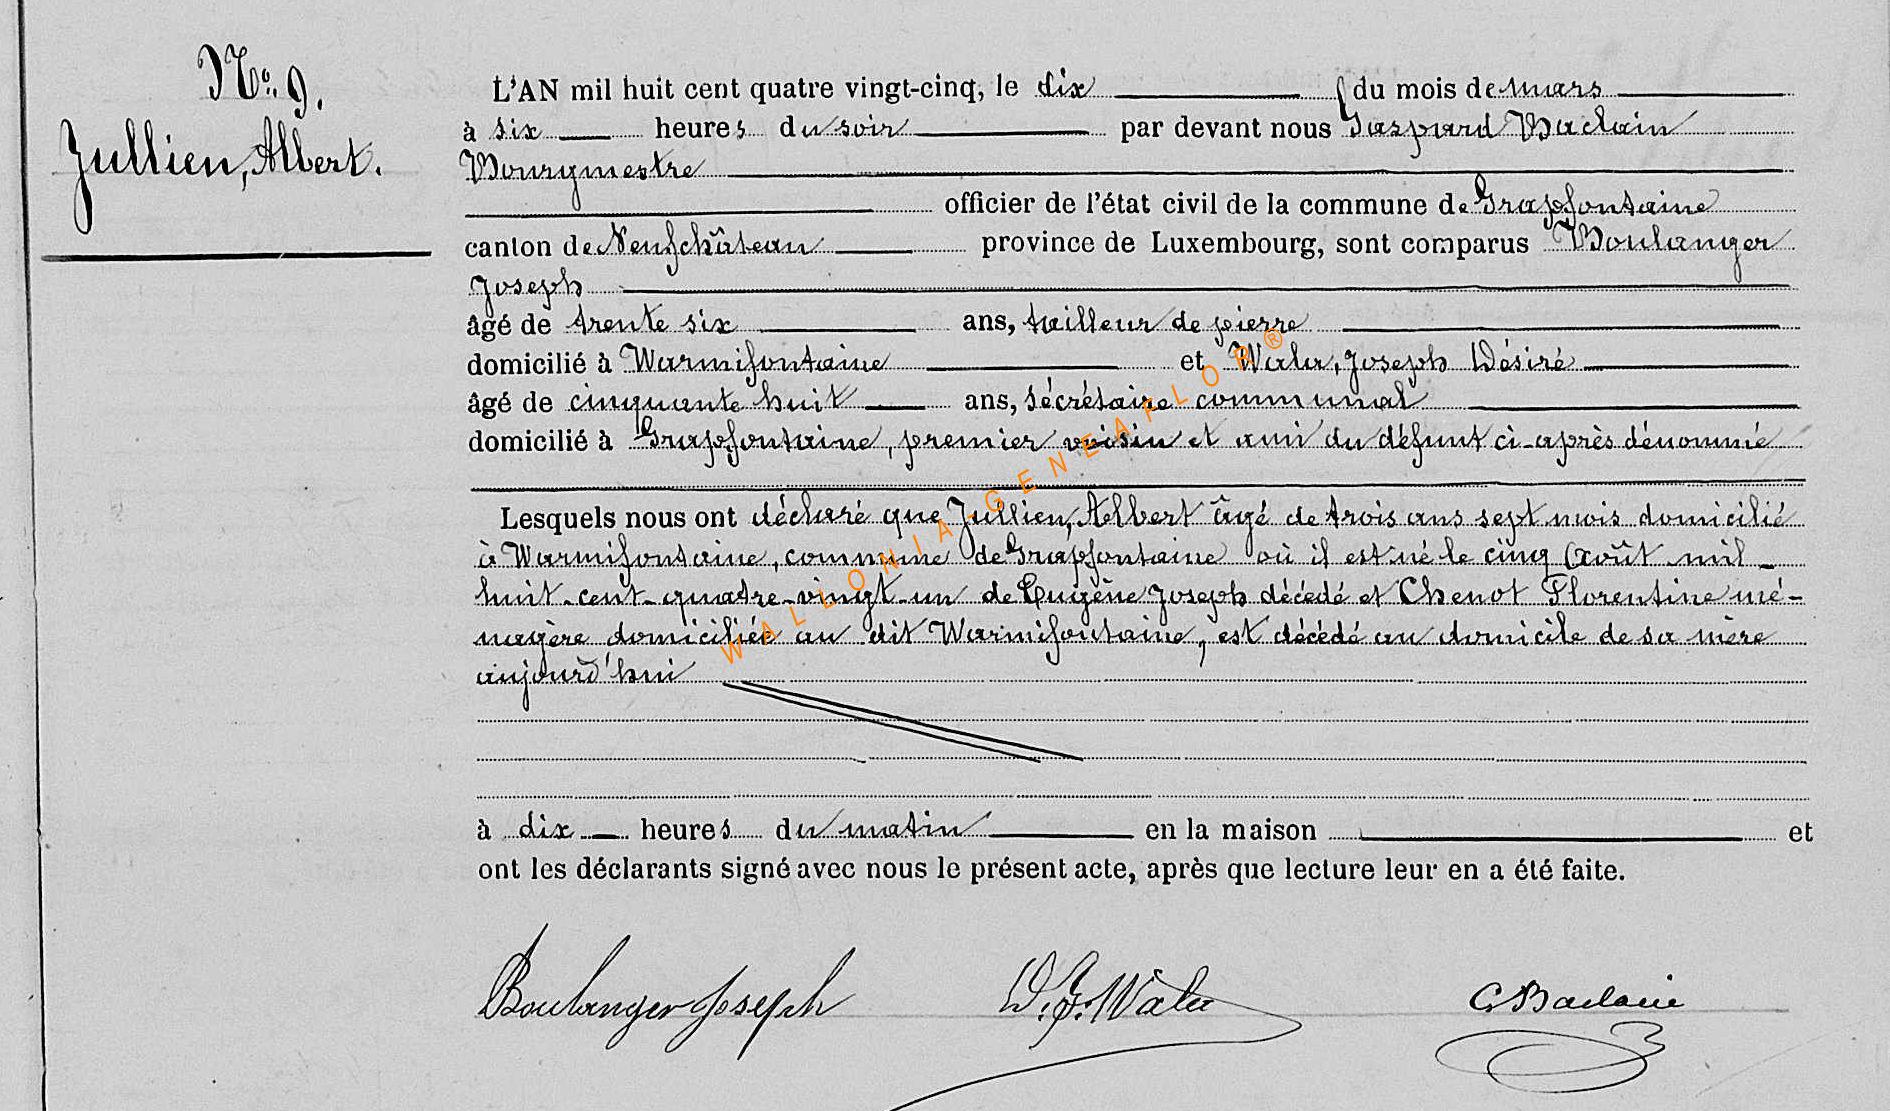 No. 9.
Jullien, Albert.
L'AN mil huit cent quatre vingt-cinq, le dix du mois de mars
à six heures du soir par devant nous Gaspard Baclain
Bourgmestre
officier de l'état civil de la commune de Grapfontaine
canton de Neufchâteau province de Luxembourg, sont comparus Boulanger
Joseph
âgé de trente six ans, tailleur de pierre
domicilié à Warmifontaine et Wala, Joseph Désiré
âgé de cinquante huit ans, sécrétaire communal
domicilié à Grapfontaine, premier voisin et ami du défunt ci-après dénommé
Lesquels nous ont déclaré que Jullien, Albert âgé de trois ans sept mois domicilié
à Warmifontaine, commune de Grapfontaine où il est né le cinq Août mil
huit-cent-quatre-vingt-un de Eugène Joseph décédé et Chenot Florentine mé-
nagère domiciliée au dit Warmifontaine, est décédé au domicile de sa mère
aujourd'hui
à dix heures du matin en la maison et
ont les déclarants signé avec nous le présent acte, après que lecture leur en a été faite.
Boulanger Joseph D. J. Wala G Baclain
WALLONIA-GENEAFLOR®